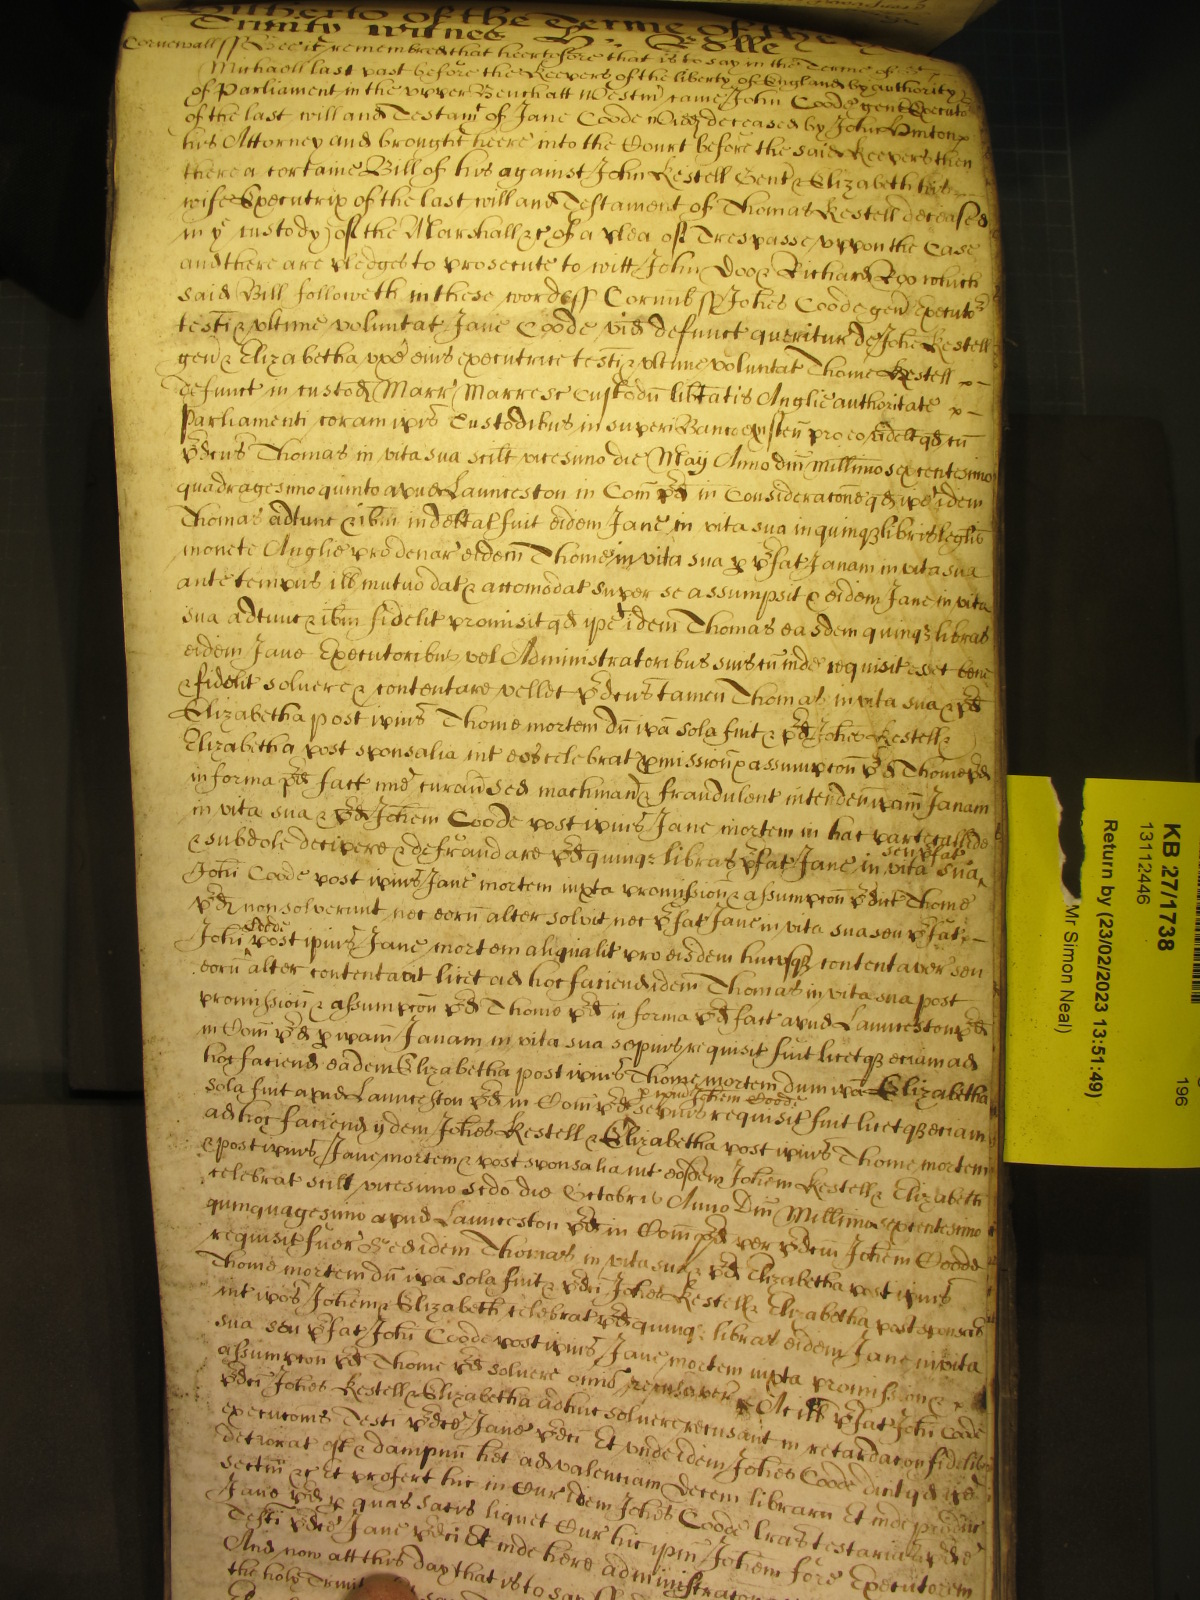 Hitherto of the Terme of the
Trinity witnes H: Rolle
Cornewall ss Bee it remembred that heertofore that is to say in the Terme of St
Michaell last past before the Keepers of the liberty of England by authority
of Parliament in the upper Bench att Westmr came John Coode gent Executor
of the last will and Testamt of Jane Coode widd deceased by John Hinton
his Attorney and brought heere into the Court before the said Keepers then
there a certaine Bill of his against John Kestell Gent & Elizabeth his
wife Executrix of the last will and Testament of Thomas Kestell deceased
in ye custody of the Marshall &c of a plea of Trespasse uppon the Case
and there are pledges to prosecute to witt John Doo & Richard Roo which
said Bill followeth in these words ss Cornub ss Johes Coode gen Executor
testi & ultime voluntat Jane Coode vid defunct queritur de Johe Kestell
gen & Elizabetha uxe eius executrice testi & ultime voluntat Thome Kestell
defunct in custod Marr Marresc Custodu libtatis Anglie authoritate
Parliamenti coram ipis Custodibus in superi Banco existen pro eo videlt qd cu
pdcus Thomas in vita sua scilt vicesimo die Maij Anno dni millimo sexcentesimo
quadragesimo quinto apud Launceston in Com pd in Consideracone qd ipe idem
Thomas adtunc & ibm indebtat fuit eidem Jane in vita sua in quinqz libris legalis
monete Anglie pro denar eidem Thome in vita sua p pfat Janam in vita sua
ante tempus ill mutuo dat & accomodat super se assumpsit & eidem Jane in vita
sua adtunc & ibm fidelit promisit qd ipe idem Thomas easdem quinqz libras
eidem Jane Executoribus vel Administratoribus suis cu inde requisit esset bene
& fidelit solvere & contentare vellet pdcus tamen Thomas in vita sua & pd
Elizabetha post ipius Thome mortem du ipa sola fuit & pd Johes Kestell &
Elizabetha post sponsalia int eos celebrat pmission & assumpcon pd Thome pd
in forma pd fact mie curan sed machinan & fraudulent intenden ipam Janam
in vita sua & pd Johem Coode post ipius Jane mortem in hac parte callide
& subdole decipere & defraudare pd quinqz libras pfat Jane in vita sua seu pfat
John Coode post ipius Jane mortem iuxta promission & assumpcon pdict Thome
pd non solverunt nec eoru alter solvit nec pfat Jane in vita sua seu pfat
John Coode post ipius Jane mortem aliqualit pro eisdem hucusqz contentaver seu
eoru alter contentavit licet ad hoc faciend idem Thomas in vita sua post
promission & assumpcon pd Thome pd in forma pd fact apud Launceston pd
in Com pd p ipam Janam in vita sua sepius requisit fuit licetqz eciam ad
hoc faciend eadem Elizabetha post ipius Thome mortem dum ipa Elizabetha
sola fuit apud Launceston pd in Com pd p ipm Johem Coode sepius requisit fuit licetqz eciam
ad hoc faciend ijdem Johes Kestell & Elizabetha post ipius Thome mortem
& post ipius Jane mortem & post sponsalia int eosdem Johem Kestell & Elizabeth
celebrat scilt vicesimo scdo die Octobris Anno Dni Millimo sexcentesimo
quinquagesimo apud Launceston pd in Com pd per pdcm Johem Coode
requisit fuer Sed idem Thomas in vita sua & pd Elizabetha post ipius
Thome mortem du ipa sola fuit & pdci Johes Kestell & Elizabetha post sponsal
int ipos Johem & Elizabeth celebrat pd quinqz libras eidem Jane in vita
sua seu pfat John Coode post ipius Jane mortem iuxta promission &
assumpcon pd Thome pd solvere omnio recusaver Ac ill pfat John Coode
pdci Johes Kestell & Elizabetha adhuc solvere recusant in retardacon fidelis
execucons Testi pdce Jane pdci Et unde idem Johes Coode dicit qd ipe
deteriorat est & dampnu het ad valenciam Decem librarn Et inde producit
sectam &c Et profert hic in Cur idem Johes Coode lras testamentar pdce
Jane pd p quas satis liquet Cur hic ipm Johem fore Executorem
Testi pdce Jane pdci Et inde here administracon
And now att this day that is to say
the holy Trinit
KB 27/1738
13112446
Return by (23/02/2023 13:51:49)
Mr Simon Neal)
196